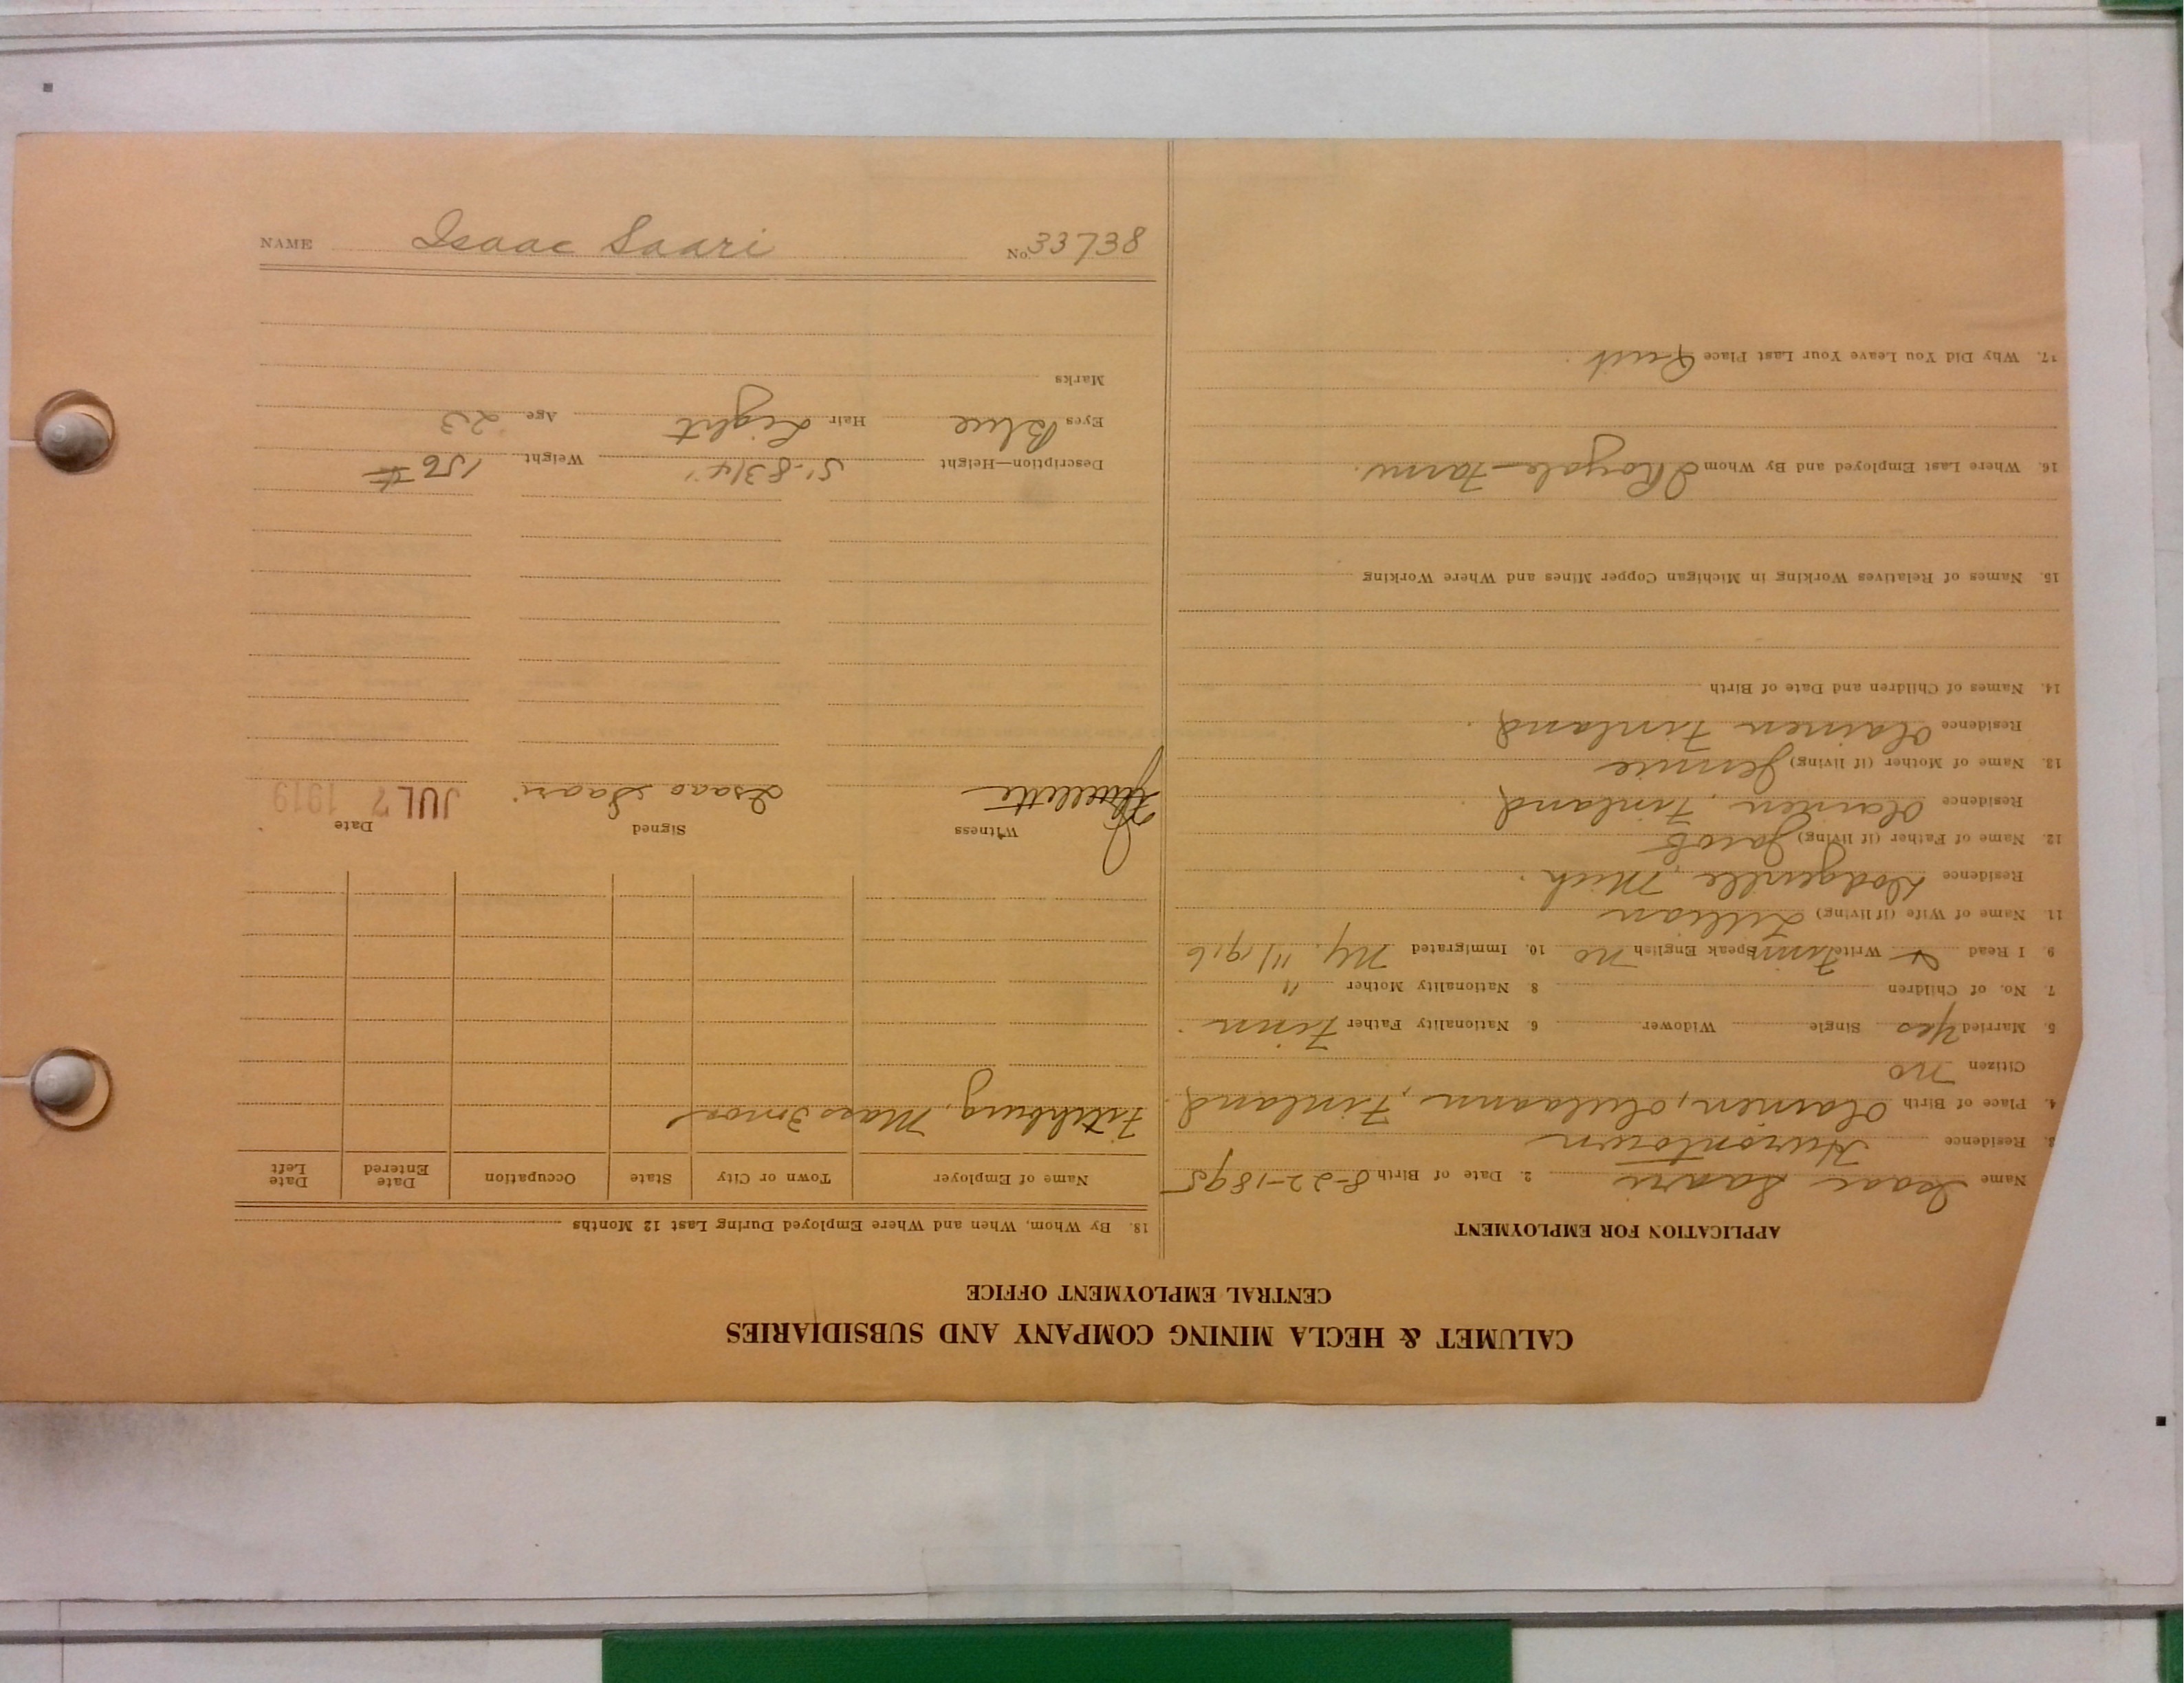 CALUMET & HECLA MINING COMPANY AND SUBSIDIARIES
CENTRAL EMPLOYMENT OFFICE
APPLICATION FOR EMPLOYMENT
Name Isaac Saari 2. Date of Birth 8-22-1895
3. Residence Hurontown
4. Place of Birth Olainen, Finland.
Citizen no
5. Married Yes Single Widower 6. Nationality Father Finn
7. No. of Children 8. Nationality Mother "
9 I Read & Write Finn Speak English no 10. Immigrated NY. 11/1916
11. Name of Wife (if living) Lillian
Residence Dodgeville, Mich.
12. Name of Father (if living) Jacob
Residence Olainen, Finland.
13. Name of Mother (if living) Jennie
Residence Olainen Finland.
14. Names of Children and Date of Birth
15. Names of Relatives Working in Michigan Copper Mines and Where Working
16. Where Last Employed and By Whom I Royale-Farm.
17. Why Did You Leave Your Last Place Quit.
18. By Whom, When and Where Employed During Last 12 Months
Name of Employer Town or City State Occupation Date Entered Date Left
Fitchburg, Mass 3 mos
Witness Signed Date
Isaac Saari JUL 7 1919
Description—Height 5'-8 3/4" Weight 156 #
Eyes Blue Hair Light Age 23
Marks
NAME Isaac Saari No. 33738